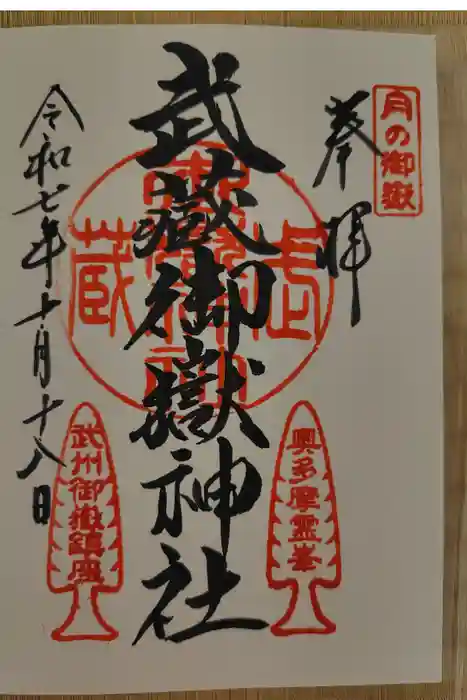 月の御嶽
奉拝
武蔵御嶽神社
武蔵
奥多摩霊峯
武州御嶽鎮座
令和七年十月十八日